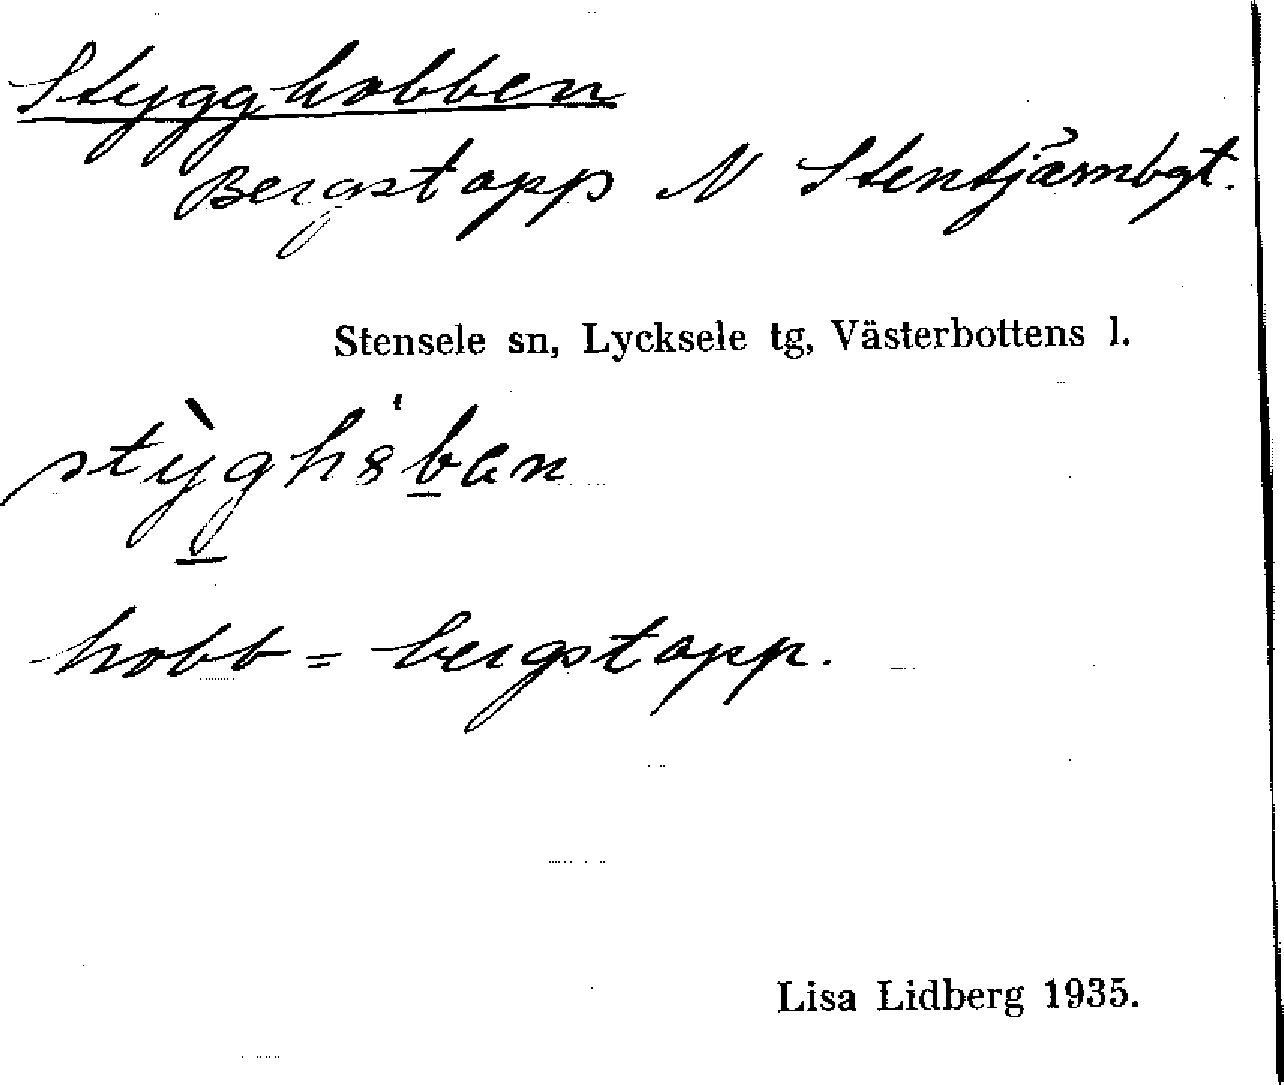 Stygghobben
Bergstapp N Stentjärnbgt.
Stensele sn, Lycksele tg, Västerbottens l.
hobb = bergstapp.
Lisa Lidberg 1935.